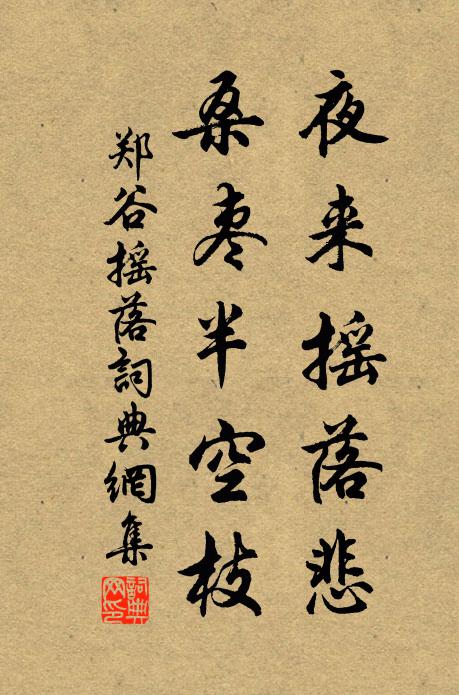 夜来摇落悲
桑枣半空枝
郑谷摇落詞典網集
詞典网印